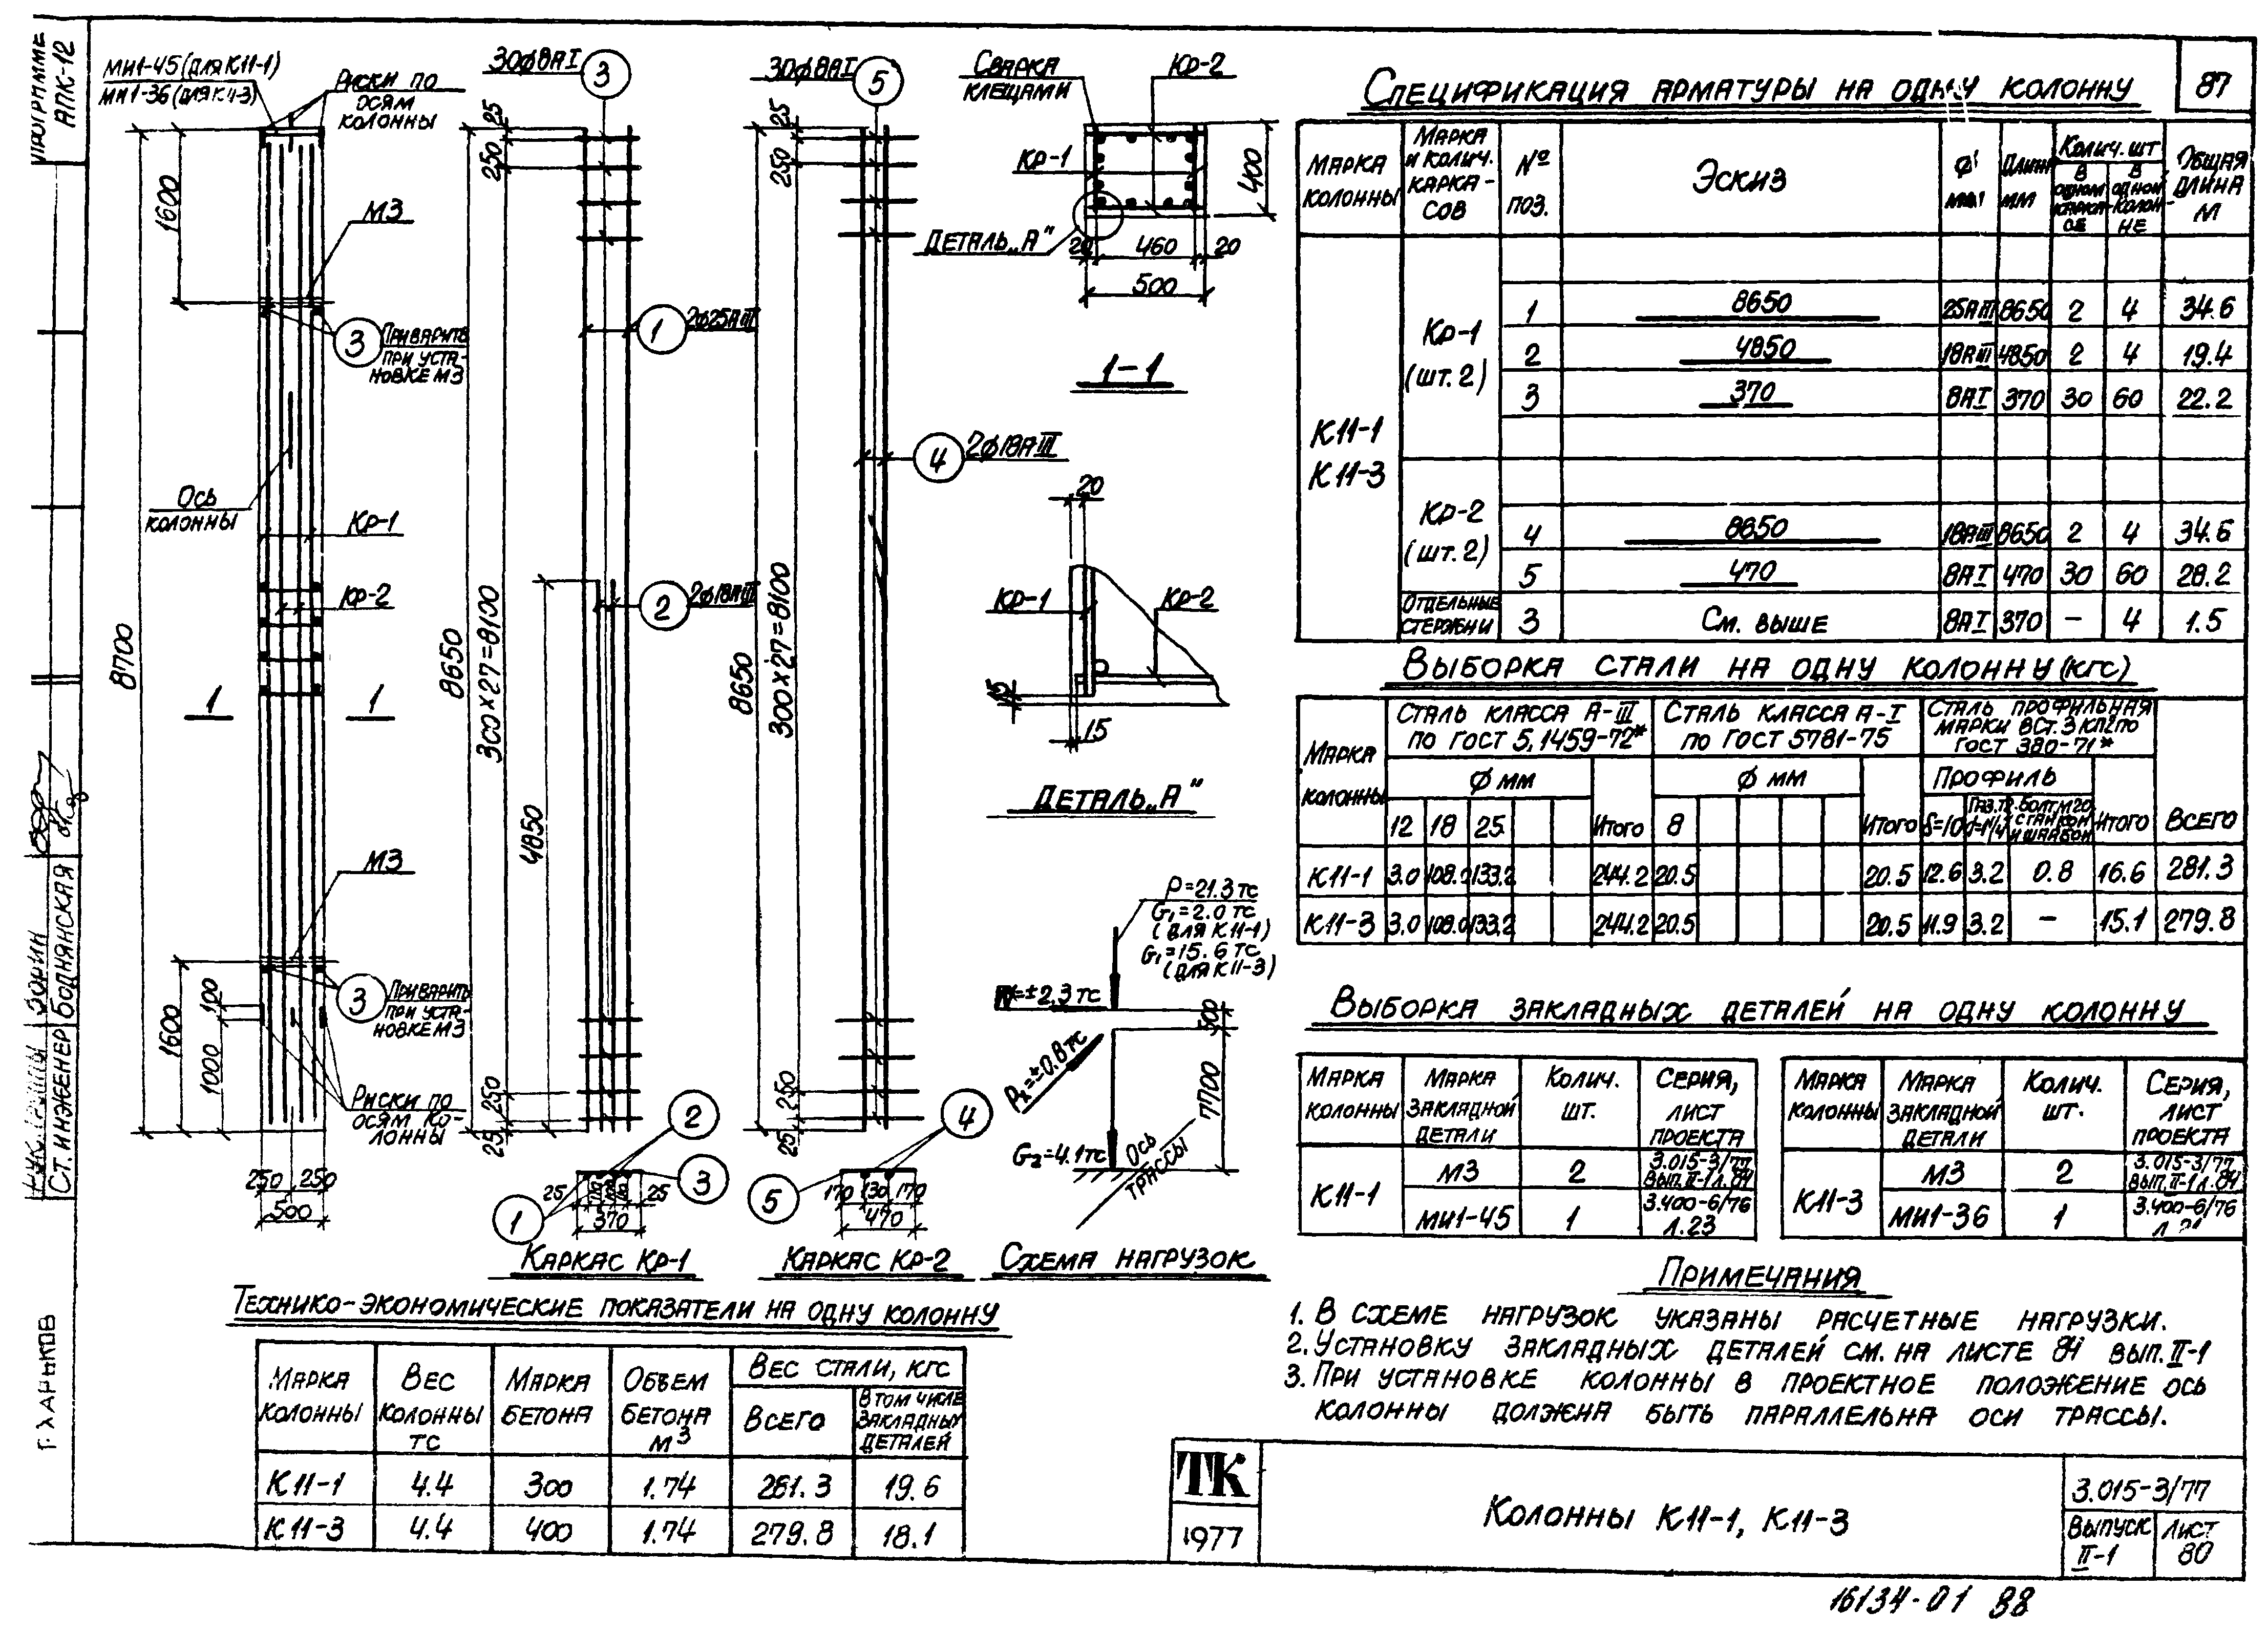 87
АПК-12
МИ1-45 (для К11-1)
МИ1-36 (для К11-3)
Риски по
осям
колонны
1600
М3
3
Приварить
при уста-
новке М3
Ось
колонны
Кр-1
Кр-2
8700
1
1
М3
3
Приварить
при уста-
новке М3
1600
100
1000
Риски по
осям ко-
лонны
250
250
500
30φ8АI
3
25
250
1
2φ25АIII
2
2φ18АIII
8650
300×27=8100
4850
250
25
2
3
1
25
25
370
Каркас Кр-1
30φ8АI
5
25
250
4
2φ18АIII
8650
300×27=8100
250
25
4
5
170
130
170
470
Каркас Кр-2
Сварка
клещами
Кр-2
Кр-1
400
Деталь „А"
20
460
20
500
1-1
20
Кр-1
Кр-2
15
Деталь „А"
P=21.3 тс
G₁=2.0 тс
(для К11-1)
G₁=15.6 тс
(для К11-3)
=±2.3 тс
500
=±0.8 тс
7700
G₂=4.1 тс
Ось
трассы
Схема нагрузок
Спецификация арматуры на одну колонну
Марка
колонны
Марка
и колич.
карка-
сов
№
поз.
Эскиз
φ
мм
Длин
мм
Колич. шт
В
одном
карка-
се
В
одной
колон-
не
Общая
длина
м
К11-1
К11-3
Кр-1
(шт. 2)
1 8650 25АIII 8650 2 4 34.6
2 4850 18АIII 4850 2 4 19.4
3 370 8АI 370 30 60 22.2
Кр-2
(шт. 2)
4 8650 18АIII 8650 2 4 34.6
5 470 8АI 470 30 60 28.2
Отдельные
стержни
3 См. выше 8АI 370 – 4 1.5
Выборка стали на одну колонну (кгс)
Марка
колонны
Сталь класса А-III
по ГОСТ 5.1459-72*
Сталь класса А-I
по ГОСТ 5781-75
Сталь профильная
марки ВСт.3 кп2 по
ГОСТ 380-71*
φ мм
φ мм
Профиль
12 18 25 Итого 8 Итого δ=10 Итого Всего
Газ.тр.
d=1¼
Болт М20
с гайкой
и шайбой
К11-1 3.0 108.0 133.2 244.2 20.5 20.5 12.6 3.2 0.8 16.6 281.3
К11-3 3.0 108.0 133.2 244.2 20.5 20.5 11.9 3.2 – 15.1 279.8
Выборка закладных деталей на одну колонну
Марка
колонны
Марка
закладной
детали
Колич.
шт.
Серия,
лист
проекта
К11-1
М3 2 3.015-3/77
вып. II-1 л.84
МИ1-45 1 3.400-6/76
л.23
Марка
колонны
Марка
закладной
детали
Колич.
шт.
Серия,
лист
проекта
К11-3
М3 2 3.015-3/77
вып. II-1 л.84
МИ1-36 1 3.400-6/76
Примечания
1. В схеме нагрузок указаны расчетные нагрузки.
2. Установку закладных деталей см. на листе 84 вып. II-1
3. При установке колонны в проектное положение ось
колонны должна быть параллельна оси трассы.
Технико-экономические показатели на одну колонну
Марка
колонны
Вес
колонны
тс
Марка
бетона
Объем
бетона
м³
Вес стали, кгс
Всего
В том числе
закладных
деталей
К11-1 4.4 300 1.74 281.3 19.6
К11-3 4.4 400 1.74 279.8 18.1
ТК
1977
Колонны К11-1, К11-3
3.015-3/77
Выпуск
II-1
Лист
80
16134-01 88
Ст. инженер
Боднянская
г. Харьков